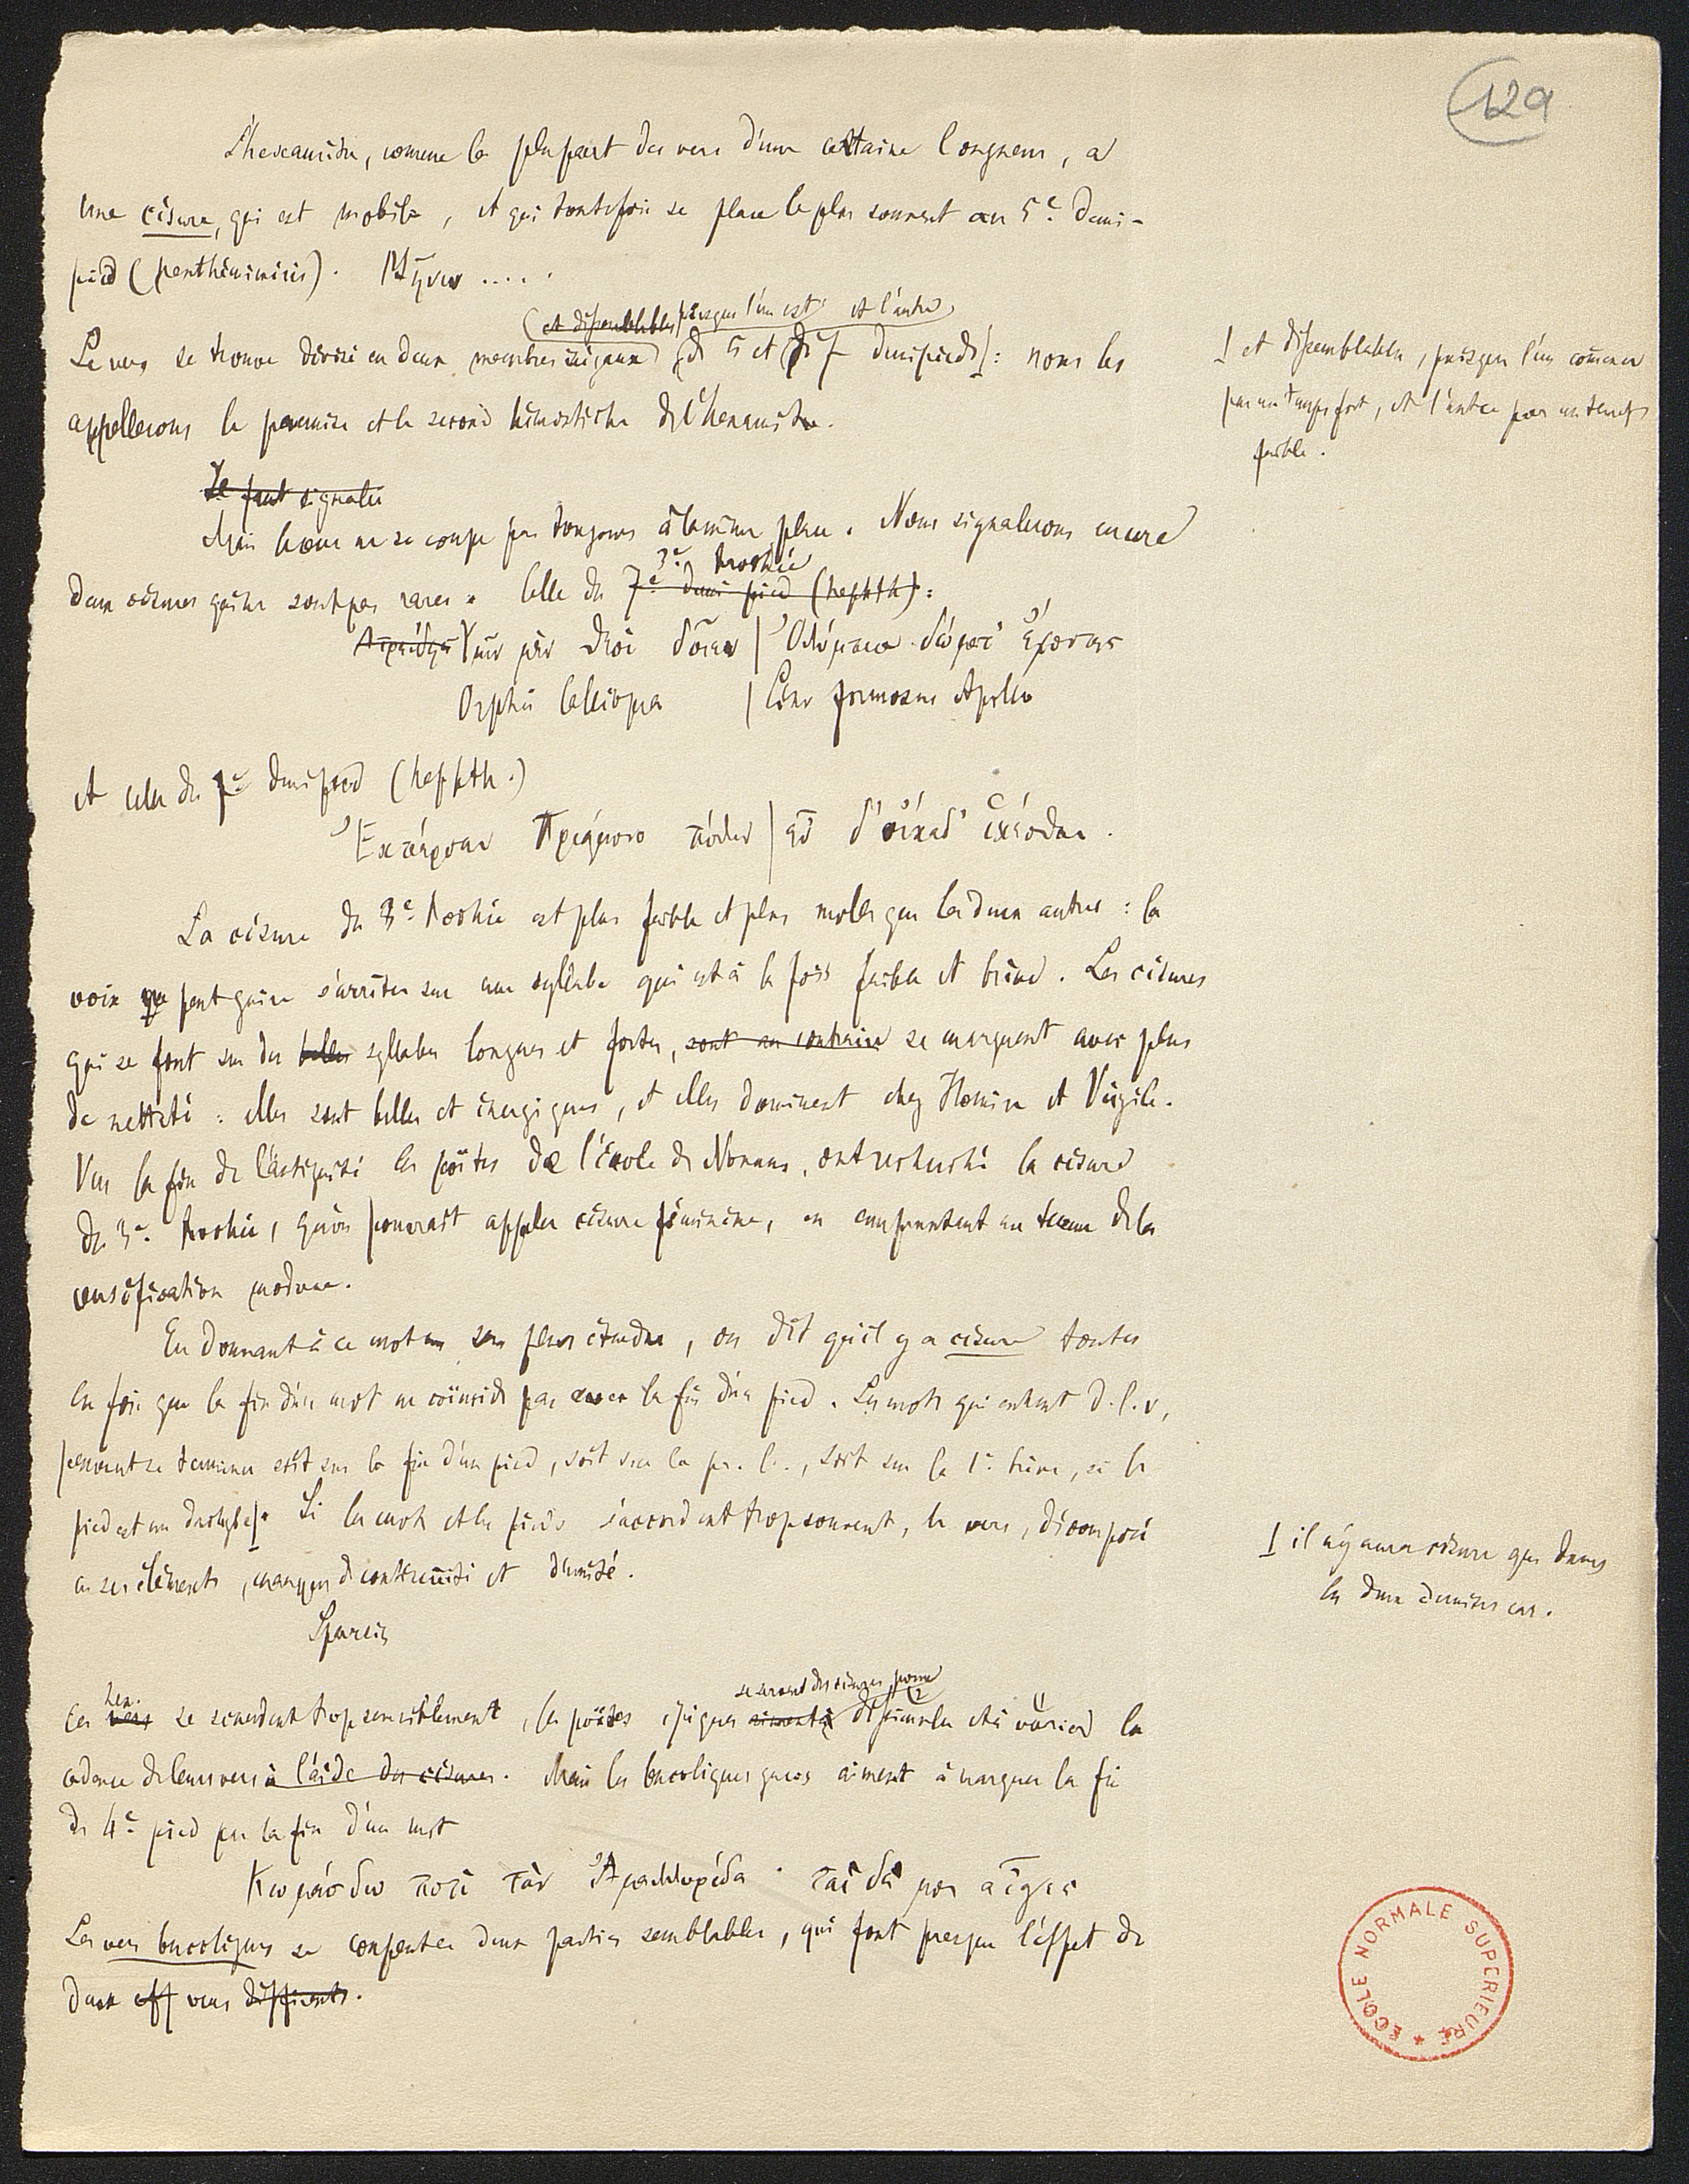 129
L'hexamètre, comme la plupart des vers d'une certaine longueur, a
une césure, qui est mobile, et qui toutefois se place le plus souvent au 5e demi-
pied (penthémimère). Μῆνιν ....
(et dissemblables, puisque l'un est et l'autre)
Le vers se trouve divisé en deux membres inégaux (de 5 et de 7 demipieds): nous les
appellerons le premier et le second hémistiche de l'hexamètre.
| et dissemblables, puisque l'un commence
par un temps fort, et l'autre par un temps
faible.
Il faut signaler
Mais le vers ne se coupe pas toujours à la même place. Nous signalerons encore
3e trochée
deux césures qui ne sont pas rares. Celle du 7e demi pied (hephth):
Ἀτρείδης Ὑμῖν μὲν θεοὶ δοῖεν | Ὀλύμπια δώματ' ἔχοντες
Orphei Calliopea | Lino formosus Apollo
et celle du 7e demipied (hephth.)
Ἐκπέρσαι Πριάμοιο πόλιν | εὖ δ' οἴκαδ' ἱκέσθαι.
La césure du 3e trochée est plus faible et plus molle que les deux autres : la
voix ne peut guère s'arrêter sur une syllabe qui est à la fois faible et brève. Les césures
qui se font sur des belles syllabes longues et fortes, sont au contraire se marquent avec plus
de netteté : elles sont belles et énergiques, et elles dominent chez Homère et Virgile.
Vers la fin de l'antiquité les poètes de l'école de Nonnus, ont recherché la césure
du 3e trochée, qu'on pourrait appeler césure féminine, en empruntant un terme de la
versification moderne.
En donnant à ce mot un sens plus étendu, on dit qu'il y a césure toutes
les fois que la fin d'un mot ne coïncide pas avec la fin d'un pied. Les mots qui entrent d. l. v,
peuvent se terminer soit sur la fin d'un pied, soit sur la pr. l.., soit sur la 1e brève, si le
pied est un dactyle|. Si les mots et les pieds s'accordent trop souvent, le vers, décomposé
en ses éléments, manque de continuité et d'unité.
| il n'y aura césure que dans
les deux derniers cas.
Sparsis
hex.
Ces vers se scandent trop sensiblement, les poètes épiques aiment à dissimuler et à varier la
se servent des césures pour
cadence de leurs vers à l'aide des césures. Mais les bucoliques grecs aiment à marquer la fin
du 4e pied par la fin d'un mot
Κωμάσδω ποτὶ τὰν Ἀμαρυλλίδα · ταὶ δέ μοι αἶγες
Les vers bucoliques se coupent en deux parties semblables, qui font presque l'effet de
deux eff vers différents.
ECOLE NORMALE SUPERIEURE